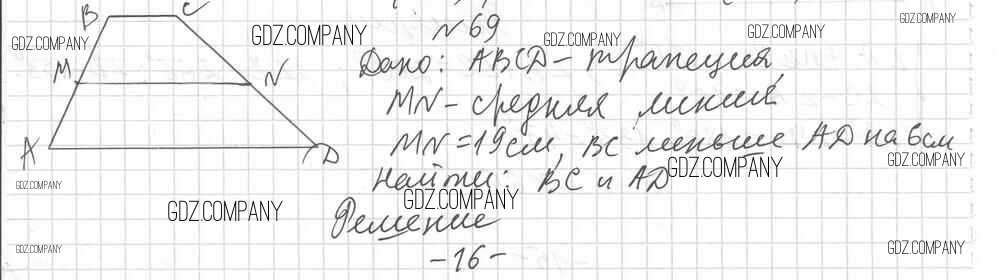 N69
B C
M N
A D
Дано: ABCD - трапеция,
MN - средняя линия
MN = 19 см, BC меньше AD на 6 см
Найти: BC и AD
Решение
-16-
GDZ.COMPANY
GDZ.COMPANY
GDZ.COMPANY
GDZ.COMPANY
GDZ.COMPANY
GDZ.COMPANY
GDZ.COMPANY
GDZ.COMPANY
GDZ.COMPANY
GDZ.COMPANY
GDZ.COMPANY